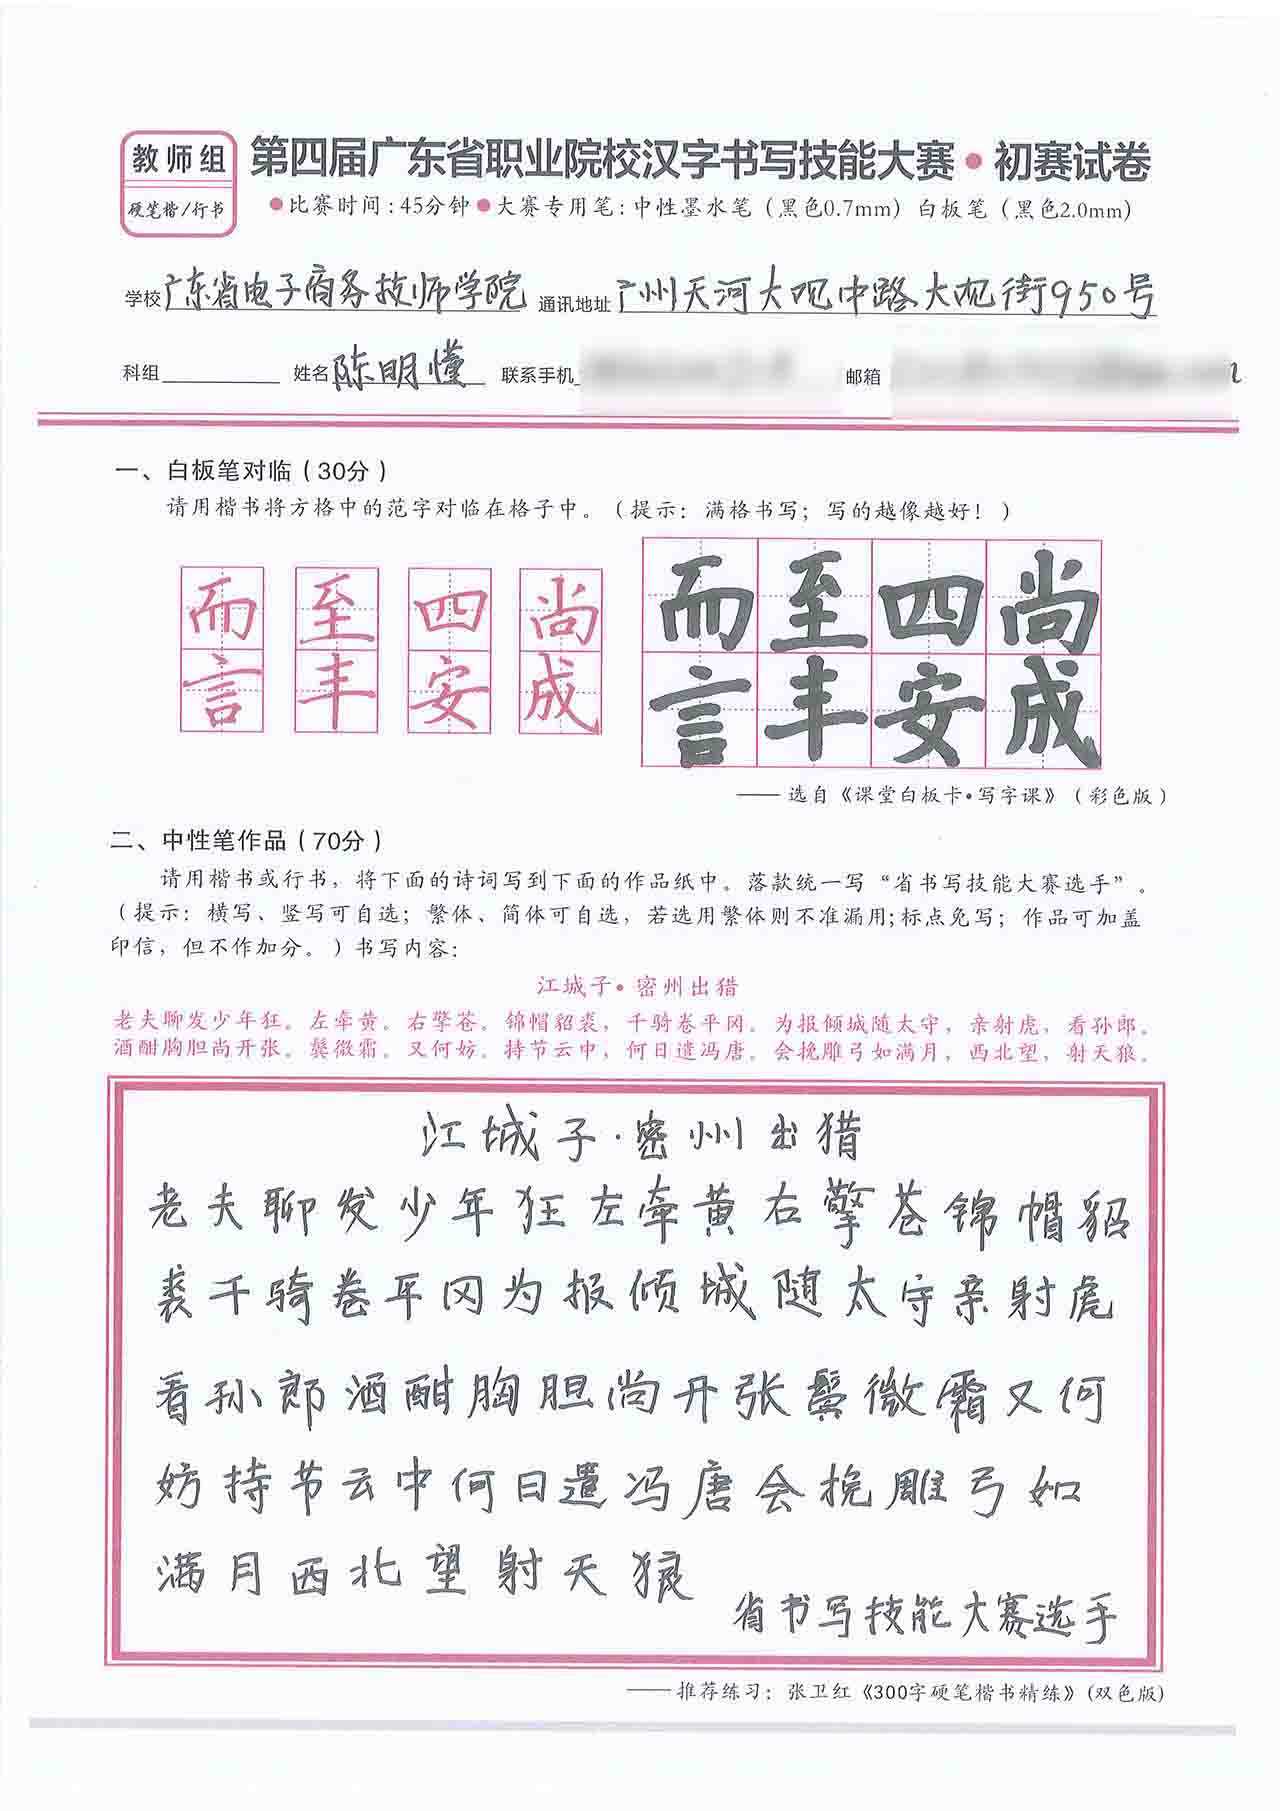 教师组
硬笔楷/行书
第四届广东省职业院校汉字书写技能大赛•初赛试卷
●比赛时间：45分钟●大赛专用笔：中性墨水笔（黑色0.7mm）白板笔（黑色2.0mm）
学校 广东省电子商务技师学院 通讯地址 广州天河大观中路大观街950号
科组 姓名 陈明懂 联系手机 邮箱
一、白板笔对临（30分）
请用楷书将方格中的范字对临在格子中。（提示：满格书写；写的越像越好！）
而 至 四 尚 而 至 四 尚
言 丰 安 成 言 丰 安 成
——选自《课堂白板卡•写字课》（彩色版）
二、中性笔作品（70分）
请用楷书或行书，将下面的诗词写到下面的作品纸中。落款统一写“省书写技能大赛选手”。
（提示：横写、竖写可自选；繁体、简体可自选，若选用繁体则不准漏用;标点免写；作品可加盖
印信，但不作加分。）书写内容：
江城子•密州出猎
老夫聊发少年狂。左牵黄。右擎苍。锦帽貂裘，千骑卷平冈。为报倾城随太守，亲射虎，看孙郎。
酒酣胸胆尚开张。鬓微霜。又何妨。持节云中，何日遣冯唐。会挽雕弓如满月，西北望，射天狼。
江城子·密州出猎
老夫聊发少年狂左牵黄右擎苍锦帽貂
裘千骑卷平冈为报倾城随太守亲射虎
看孙郎酒酣胸胆尚开张鬓微霜又何
妨持节云中何日遣冯唐会挽雕弓如
满月西北望射天狼
省书写技能大赛选手
——推荐练习：张卫红《300字硬笔楷书精练》(双色版)